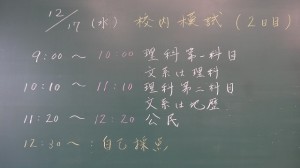 12/17(水) 校内模試(2日目)
9:00 〜 10:00 理科第一科目
文系は理科
10:10 〜 11:10 理科第二科目
文系は地歴
11:20 〜 12:20 公民
12:30〜:自己採点